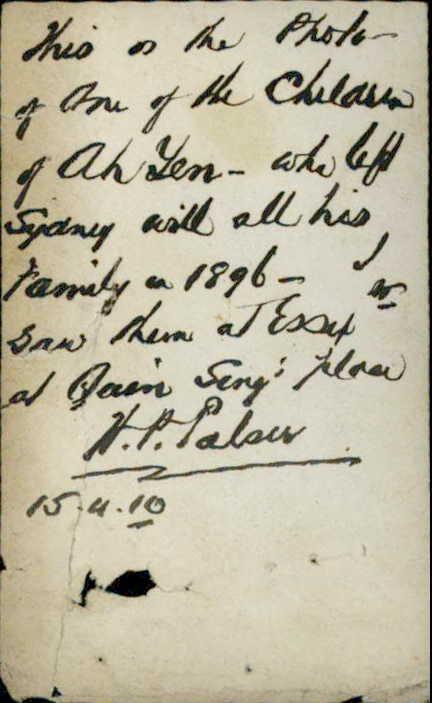 This is the Photo -
of One of the Children
of Ah Yen - who left
Sydney with all his
Family in 1896 -
saw them at Essex
at Sing's place
H. P.
15.4.10